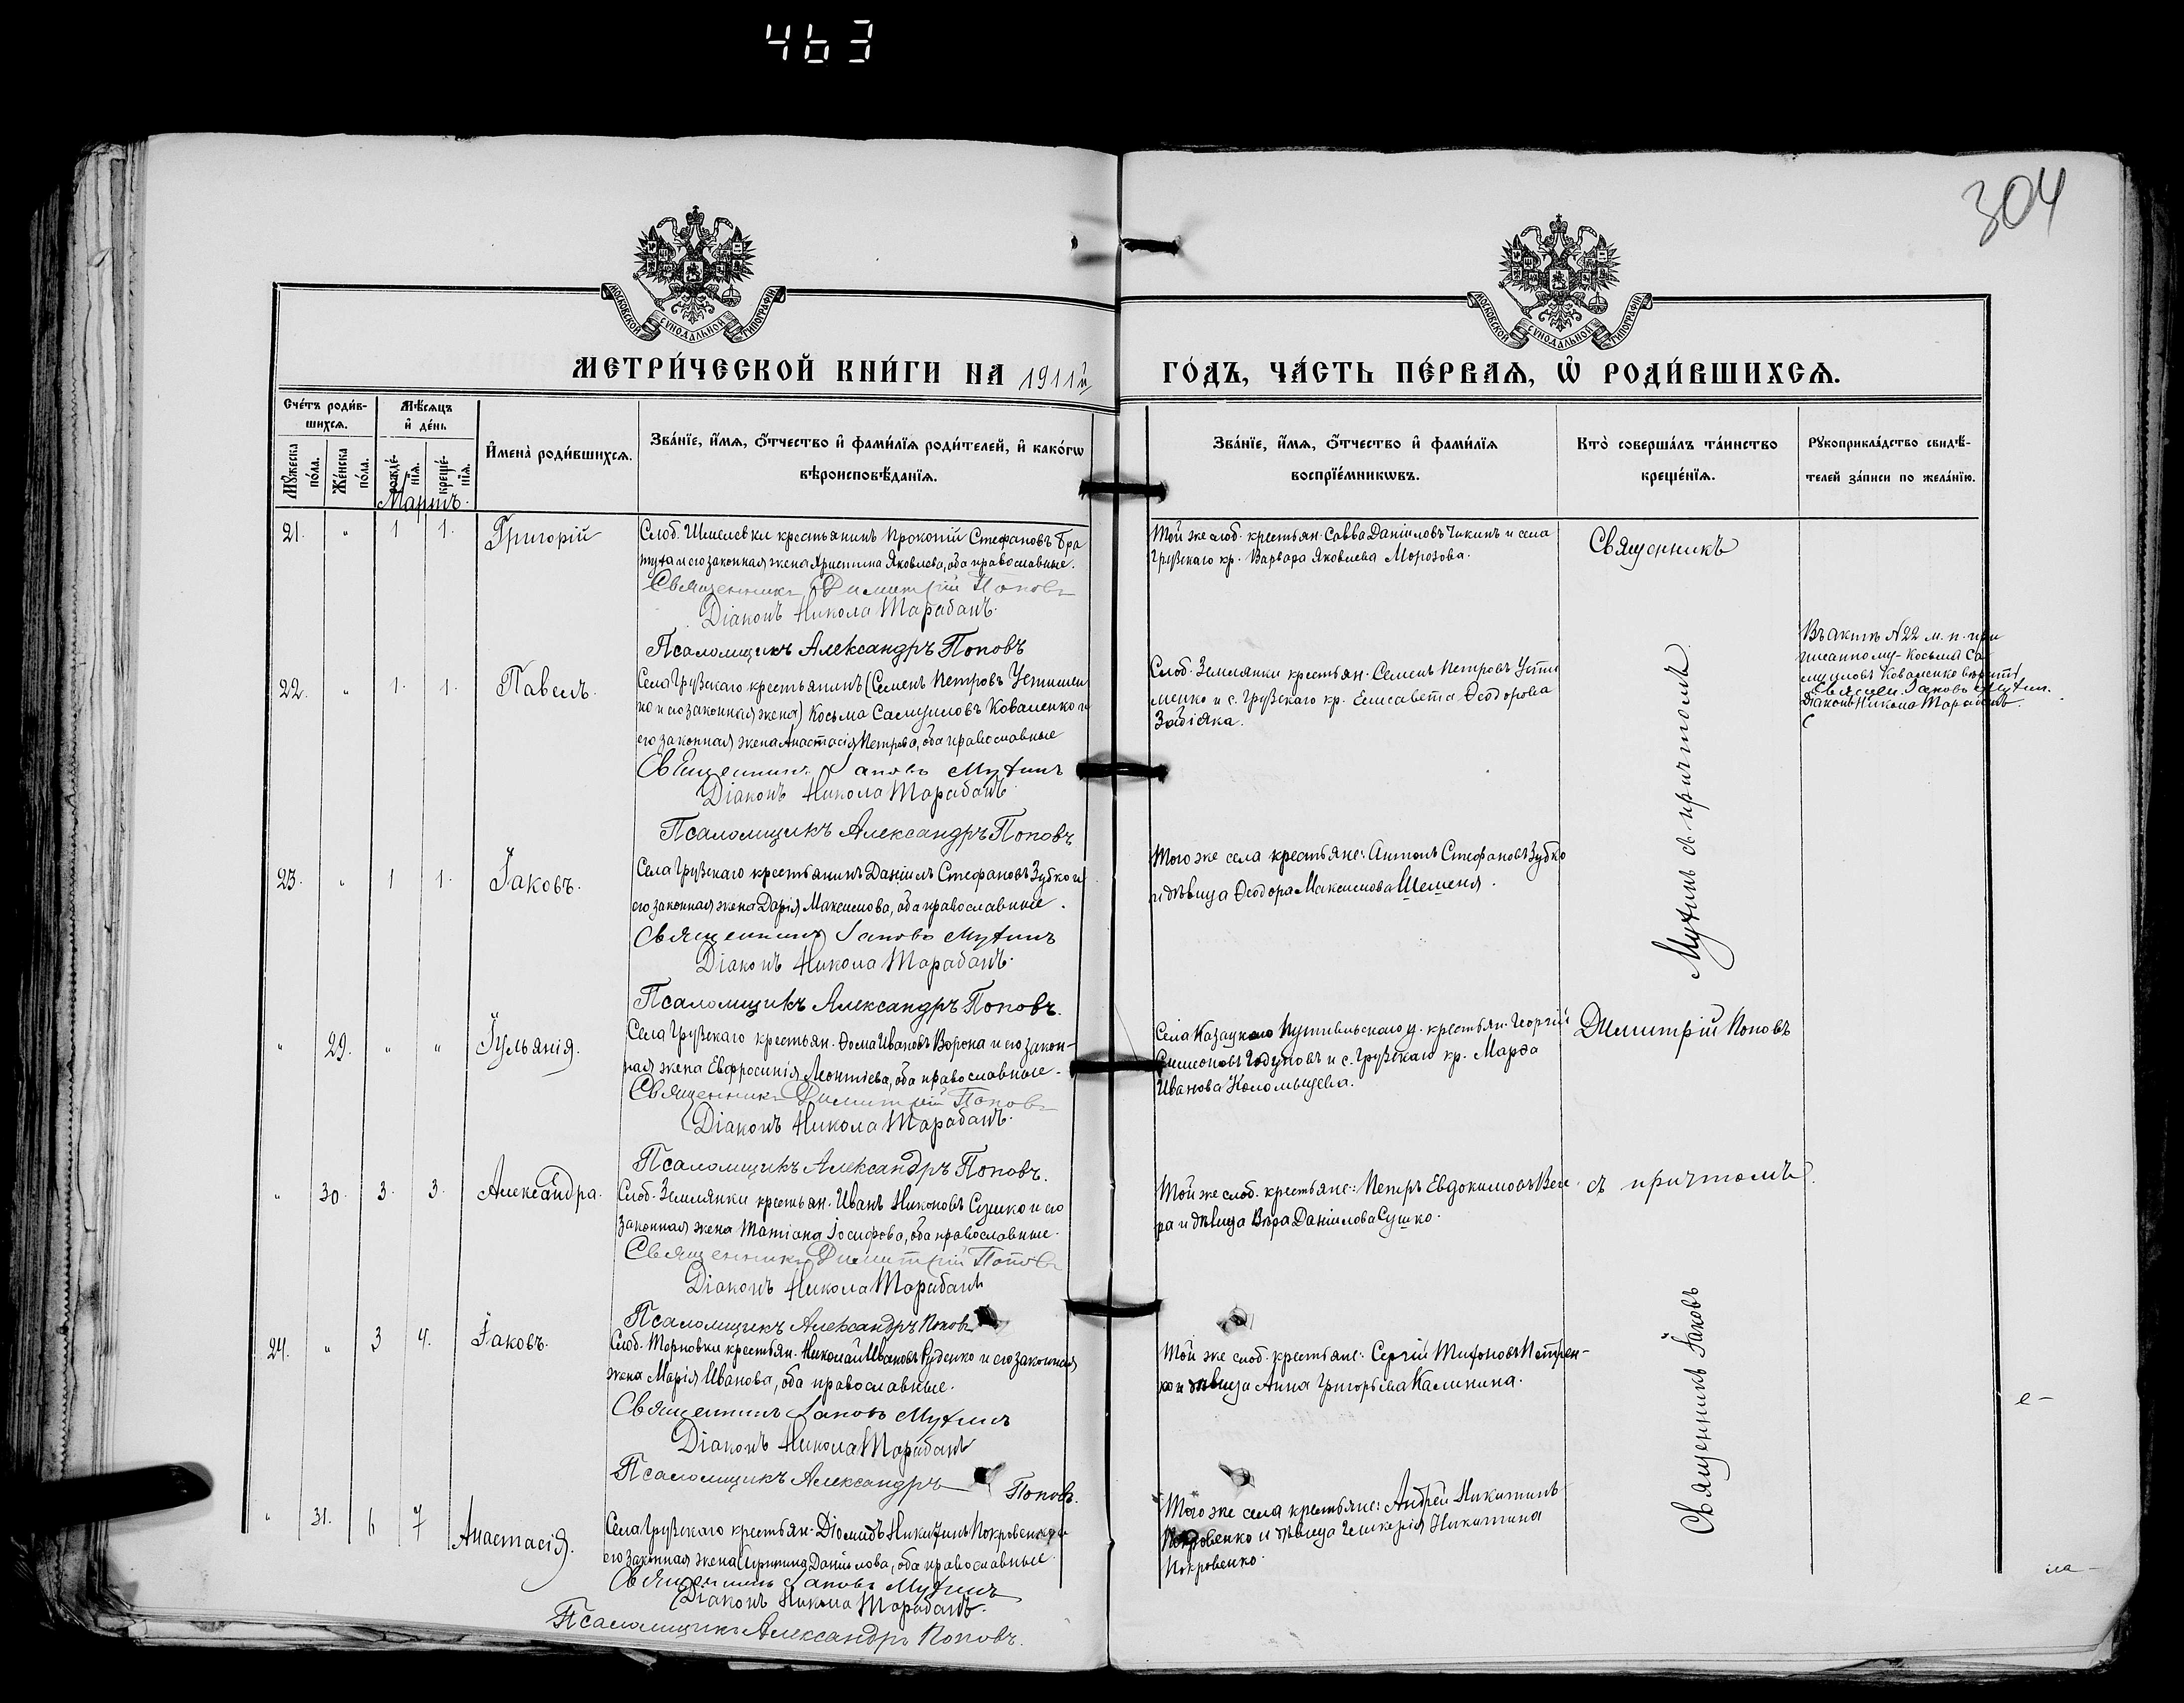 463
304
МОСКОВСКОЙ СѴНОДАЛЬНОЙ ТИПОГРАФІИ
МОСКОВСКОЙ СѴНОДАЛЬНОЙ ТИПОГРАФІИ
МЕТРИ́ЧЕСКОЙ КНИ́ГИ НА 1911й
ГО́ДЪ, ЧА́СТЬ ПЕ́РВАѦ, Ѡ҆ РОДИ́ВШИХСѦ.
Сче́тъ роди́в-
шихсѧ.
Мѣ́сѧцъ
и҆ де́нь.
Мꙋ́жеска по́ла.
Же́нска по́ла.
рожде́-нїѧ.
креще́-нїѧ.
И҆мена̀ роди́вшихсѧ.
Зва́нїе, и҆́мѧ, ѻ҆́тчество и҆ фами́лїѧ роди́телей, и҆ како́гѡ
вѣроисповѣ́данїѧ.
Зва́нїе, и҆́мѧ, ѻ҆́тчество и҆ фами́лїѧ
воспрїе́мникѡвъ.
Кто̀ соверша́лъ та́инство
креще́нїѧ.
Рꙋкоприкла́дство свидѣ́-
телей за́писи по жела́нїю.
Мартъ.
21. " 1 1. Григорій
Слоб. Шмелевки крестьянинъ Прокопій Стефановъ Бра
жута и его законная жена Христина Яковлева, оба православные.
Священникъ Димитрій Поповъ
Діаконъ Никола Тарабанъ.
Псаломщикъ Александръ Поповъ
Той же слоб. крестьян. Савва Даніиловъ Чикинъ и села
Грузскаго кр. Варвара Яковлева Морозова.
Священникъ
22. " 1. 1. Павелъ.
Села Грузскаго крестьянинъ (Семенъ Петровъ Устимен
ко и его законная жена) Косьма Самуиловъ Коваленко и
его законная жена Анастасія Петрова, оба православные
Священникъ Іаковъ Мухинъ
Діаконъ Никола Тарабанъ
Псаломщикъ Александръ Поповъ
Слоб. Землянки крестьян. Семенъ Петровъ Усти
менко и с. Грузскаго кр. Елисавета Ѳеодорова
Забіяка.
Въ актѣ №22 м. п. при
писанному - Косьма Са
муиловъ Коваленко вѣрить
Священ. Іаковъ Мухин.
Діаконъ Никола Тарабанъ.
23. " 1 1. Іаковъ.
Села Грузскаго крестьянинъ Даніилъ Стефановъ Зубко и
его законная жена Дарія Максимова, оба православные.
Священникъ Іаковъ Мухинъ
Діаконъ Никола Тарабанъ.
Псаломщикъ Александръ Поповъ.
Того же села крестьяне: Антонъ Стефановъ Зубко
и дѣвица Ѳеодора Максимова Шеменя.
Мухинъ съ причтомъ
" 29. " " Іульянія.
Села Грузскаго крестьян. Ѳома Ивановъ Ворона и его закон-
ная жена Евфросинія Леонтіева, оба православные.
Священникъ Димитрій Поповъ
Діаконъ Никола Тарабанъ.
Псаломщикъ Александръ Поповъ.
Села Казацкаго Путивльскаго у. крестьян. Георгій
Симеоновъ Годуновъ и с. Грузскаго кр. Марѳа
Иванова Коломыцева.
Димитрій Поповъ
" 30. 3. 3. Александра.
Слоб. Землянки крестьян. Иванъ Никоновъ Сушко и его
законная жена Татіана Іосифова, оба православные.
Священникъ Димитрій Поповъ
Діаконъ Никола Тарабанъ
Псаломщикъ Александръ Поповъ
Той же слоб. крестьяне: Петръ Евдокимовъ
и дѣвица Вѣра Даніилова Сушко.
съ причтомъ
24. " 3 4. Іаковъ.
Слоб. Терновки крестьян. Николай Ивановъ Руденко и его законная
жена Марія Иванова, оба православные.
Священникъ Іаковъ Мухинъ
Діаконъ Никола Тарабанъ
Псаломщикъ Александръ Поповъ.
Той же слоб. крестьяне: Сергій Тихоновъ Петрен-
ко и дѣвица Анна Григорьева Калинина.
Священникъ Іаковъ
е-
" 31. 6 7 Анастасія.
Села Грузскаго крестьян. Діомидъ Никитинъ Покровенко и
его законная жена Ирина Даніилова, оба православные.
Священникъ Іаковъ Мухинъ
Діаконъ Никола Тарабанъ.
Псаломщикъ Александръ Поповъ.
Того же села крестьяне: Андрей Никитинъ
Покровенко и дѣвица Гликерія Никитина
Покровенко.
ла-